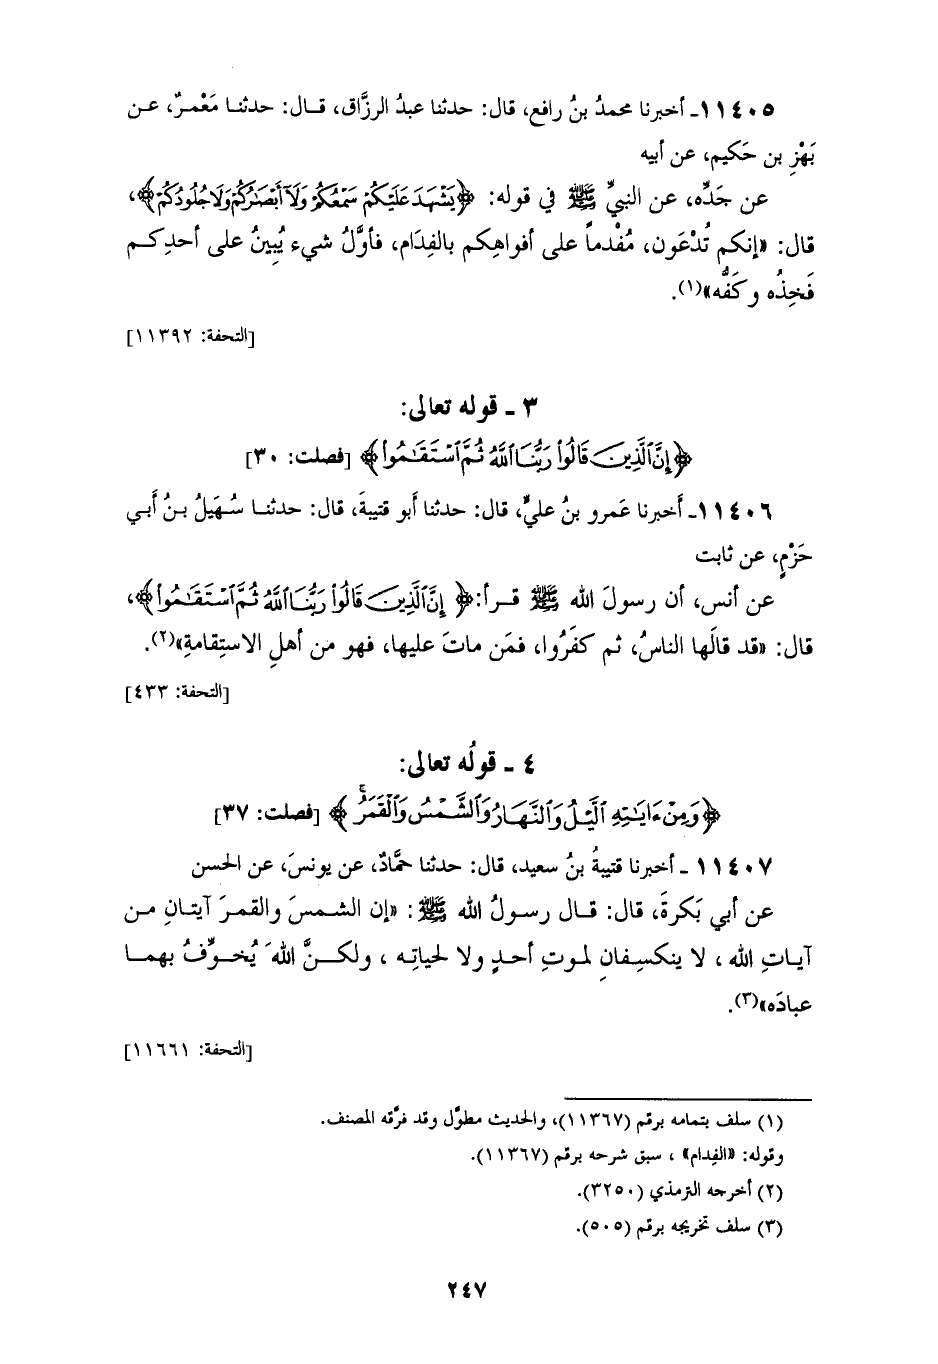 ١١٤٠٥ـ أخبرنا محمدُ بنُ رافع، قال: حدثنا عبدُ الرزَّاق، قـال: حدثنـا مَعْمـرٌ، عـن
بَهْزِ بن حَكيم، عن أبيه
عن جَدِّه، عن النبيِّ ﷺ في قوله: ﴿يَشْهَدَ عَلَيْكُمْ سَمْعُكُمْ وَلَآ أَبْصَٰرُكُمْ وَلَا جُلُودُكُمْ﴾،
قال: «إنكم تُدْعَون، مُفْدماً على أفواهِكم بالفِدَام، فأوَّلُ شيء يُبِينُ على أحدِكـم
فَخِذُه وكَفُّه»(١).
[التحفة: ١١٣٩٢]
٣ ـ قوله تعالى:
﴿إِنَّ ٱلَّذِينَ قَالُوا۟ رَبُّنَا ٱللَّهُ ثُمَّ ٱسْتَقَٰمُوا۟﴾ [فصلت: ٣٠]
١١٤٠٦ـ أَخبرنا عَمرو بنُ عليٍّ، قال: حدثنا أبو قتيبةَ، قال: حدثنـا سُـهَيلُ بـنُ أَبـي
حَزْمٍ، عن ثابت
عن أنس، أن رسولَ الله ﷺ قـرأ: ﴿إِنَّ ٱلَّذِينَ قَالُوا۟ رَبُّنَا ٱللَّهُ ثُمَّ ٱسْتَقَٰمُوا۟﴾،
قال: «قد قالَها الناسُ، ثم كفَرُوا، فمَن ماتَ عليها، فهو من أهلِ الاستِقامةِ»(٢).
[التحفة: ٤٣٣]
٤ ـ قولُه تعالى:
﴿وَمِنْ ءَايَٰتِهِ ٱلَّيْلُ وَٱلنَّهَارُ وَٱلشَّمْسُ وَٱلْقَمَرُ ۚ﴾ [فصلت: ٣٧]
١١٤٠٧ ـ أخبرنا قتيبةُ بنُ سعيد، قال: حدثنا حمَّادٌ، عن يونسَ، عن الحسن
عن أبي بَكرةَ، قال: قـال رسـولُ الله ﷺ: «إن الشـمسَ والقمـرَ آيتـانِ مـن
آيـاتِ الله ، لا ينكسِـفانِ لمـوتِ أحـدٍ ولا لحياتِـه ، ولكـنَّ اللهَ يُخـوِّفُ بهمـا
عبادَه»(٣).
[التحفة: ١١٦٦١]
(١) سلف بتمامه برقم (١١٣٦٧)، والحديث مطوَّل وقد فرَّقه المصنف.
وقوله: «الفِدام» ، سبق شرحه برقم (١١٣٦٧).
(٢) أخرجه الترمذي (٣٢٥٠).
(٣) سلف تخريجه برقم (٥٠٥).
٢٤٧